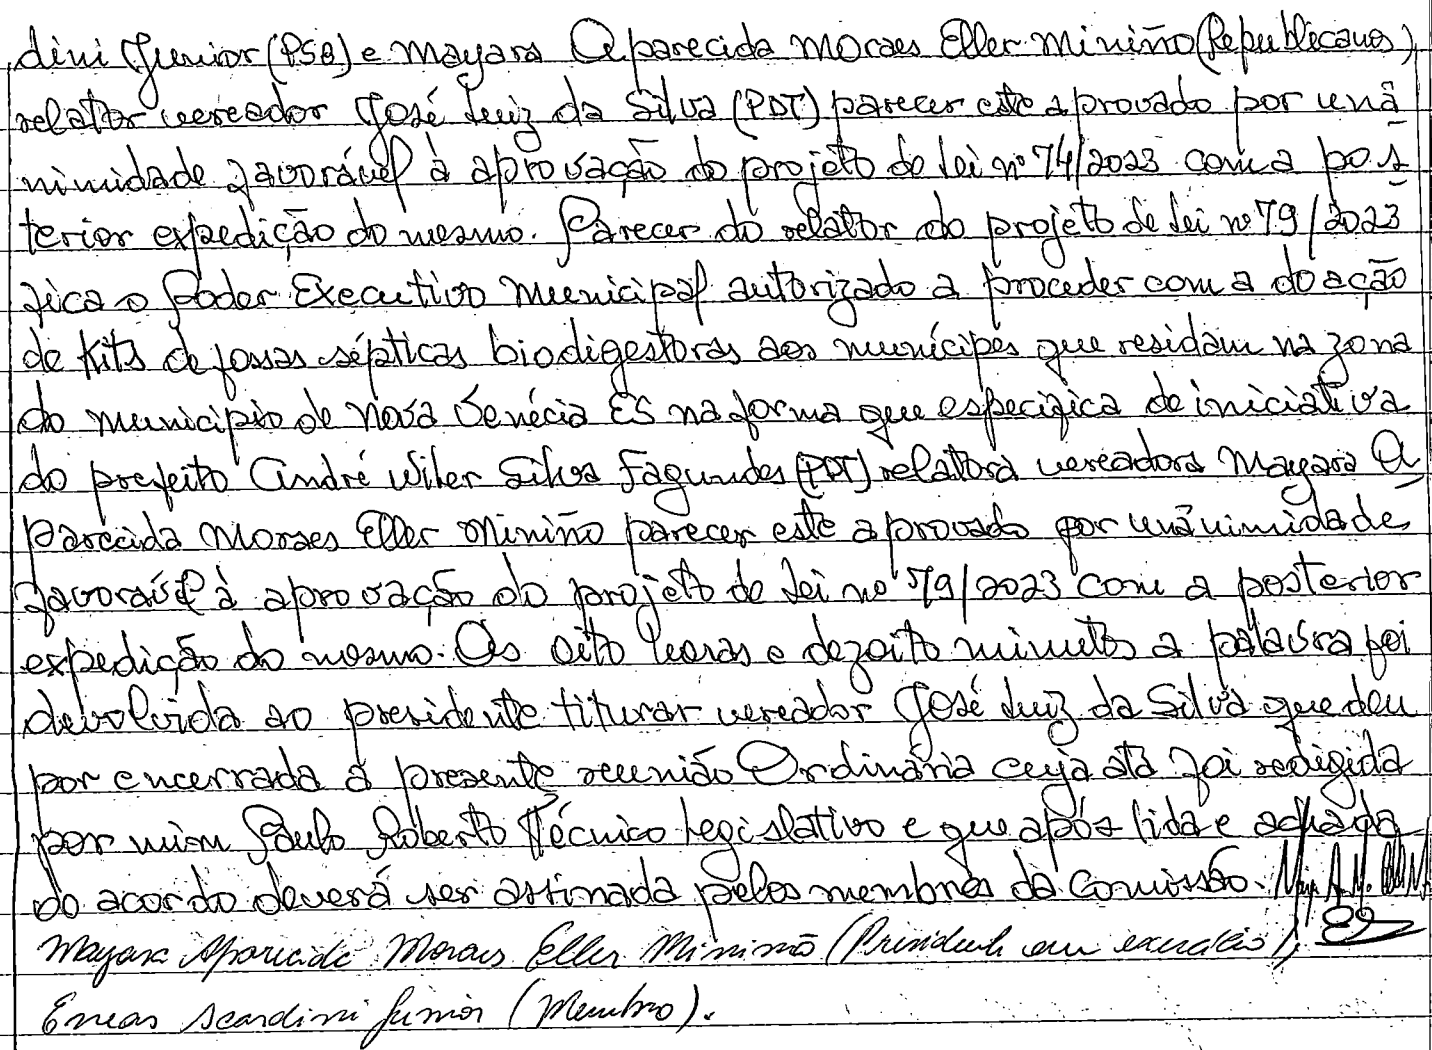 dini Junior (PSB) e Mayara Aparecida Moraes Eller Miniño (Republicanos),
relator vereador José Luiz da Silva (PDT) parecer este aprovado por unâ
nimidade favorável à aprovação do projeto de lei nº 74/2023 com a pos
terior expedição do mesmo. Parecer do relator do projeto de lei nº 79/2023
fica o Poder Executivo Municipal autorizado a proceder com a doação
de kits de fossas sépticas biodigestoras aos munícipes que residam na zona
do município de Nova Venécia ES na forma que especifica de iniciativa
do prefeito André Wiler Silva Fagundes (PDT) relatora vereadora Mayara A
parecida Moraes Eller Miniño parecer este aprovado por unânimidade
favorável à aprovação do projeto de lei nº 79/2023 com a posterior
expedição do mesmo. Às oito horas e dezoito minutos a palavra foi
devolvida ao presidente titurar vereador José Luiz da Silva que deu
por encerrada a presente reunião Ordinária cuja ata foi redigida
por mim Paulo Roberto Técnico legislativo e que após lida e achada
do acordo deverá ser assinada pelos membros da Comissão.
Mayara Aparecida Moraes Eller Miniño (Presidente em exercício),
Eneas Scardini Junior (Membro).